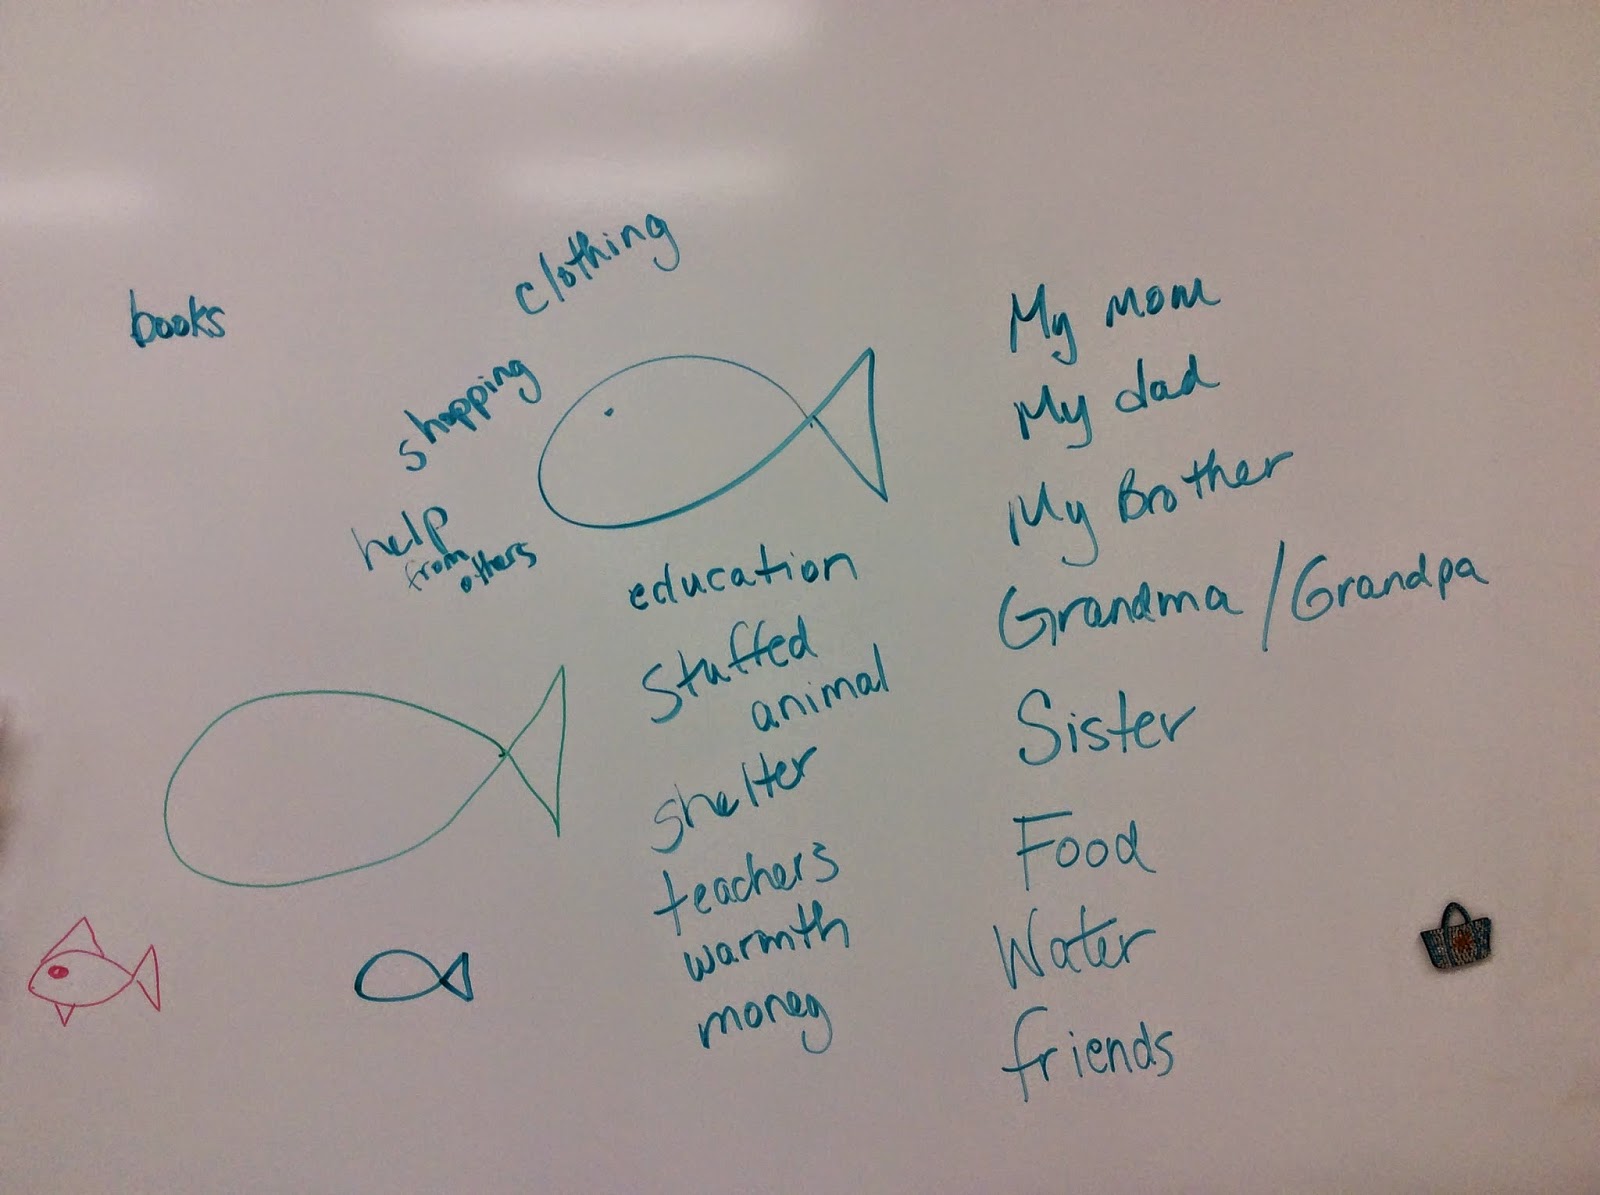 books
clothing
shopping
help
from
others
education
Stuffed
animal
shelter
teachers
warmth
money
My mom
My dad
My Brother
Grandma / Grandpa
Sister
Food
Water
friends